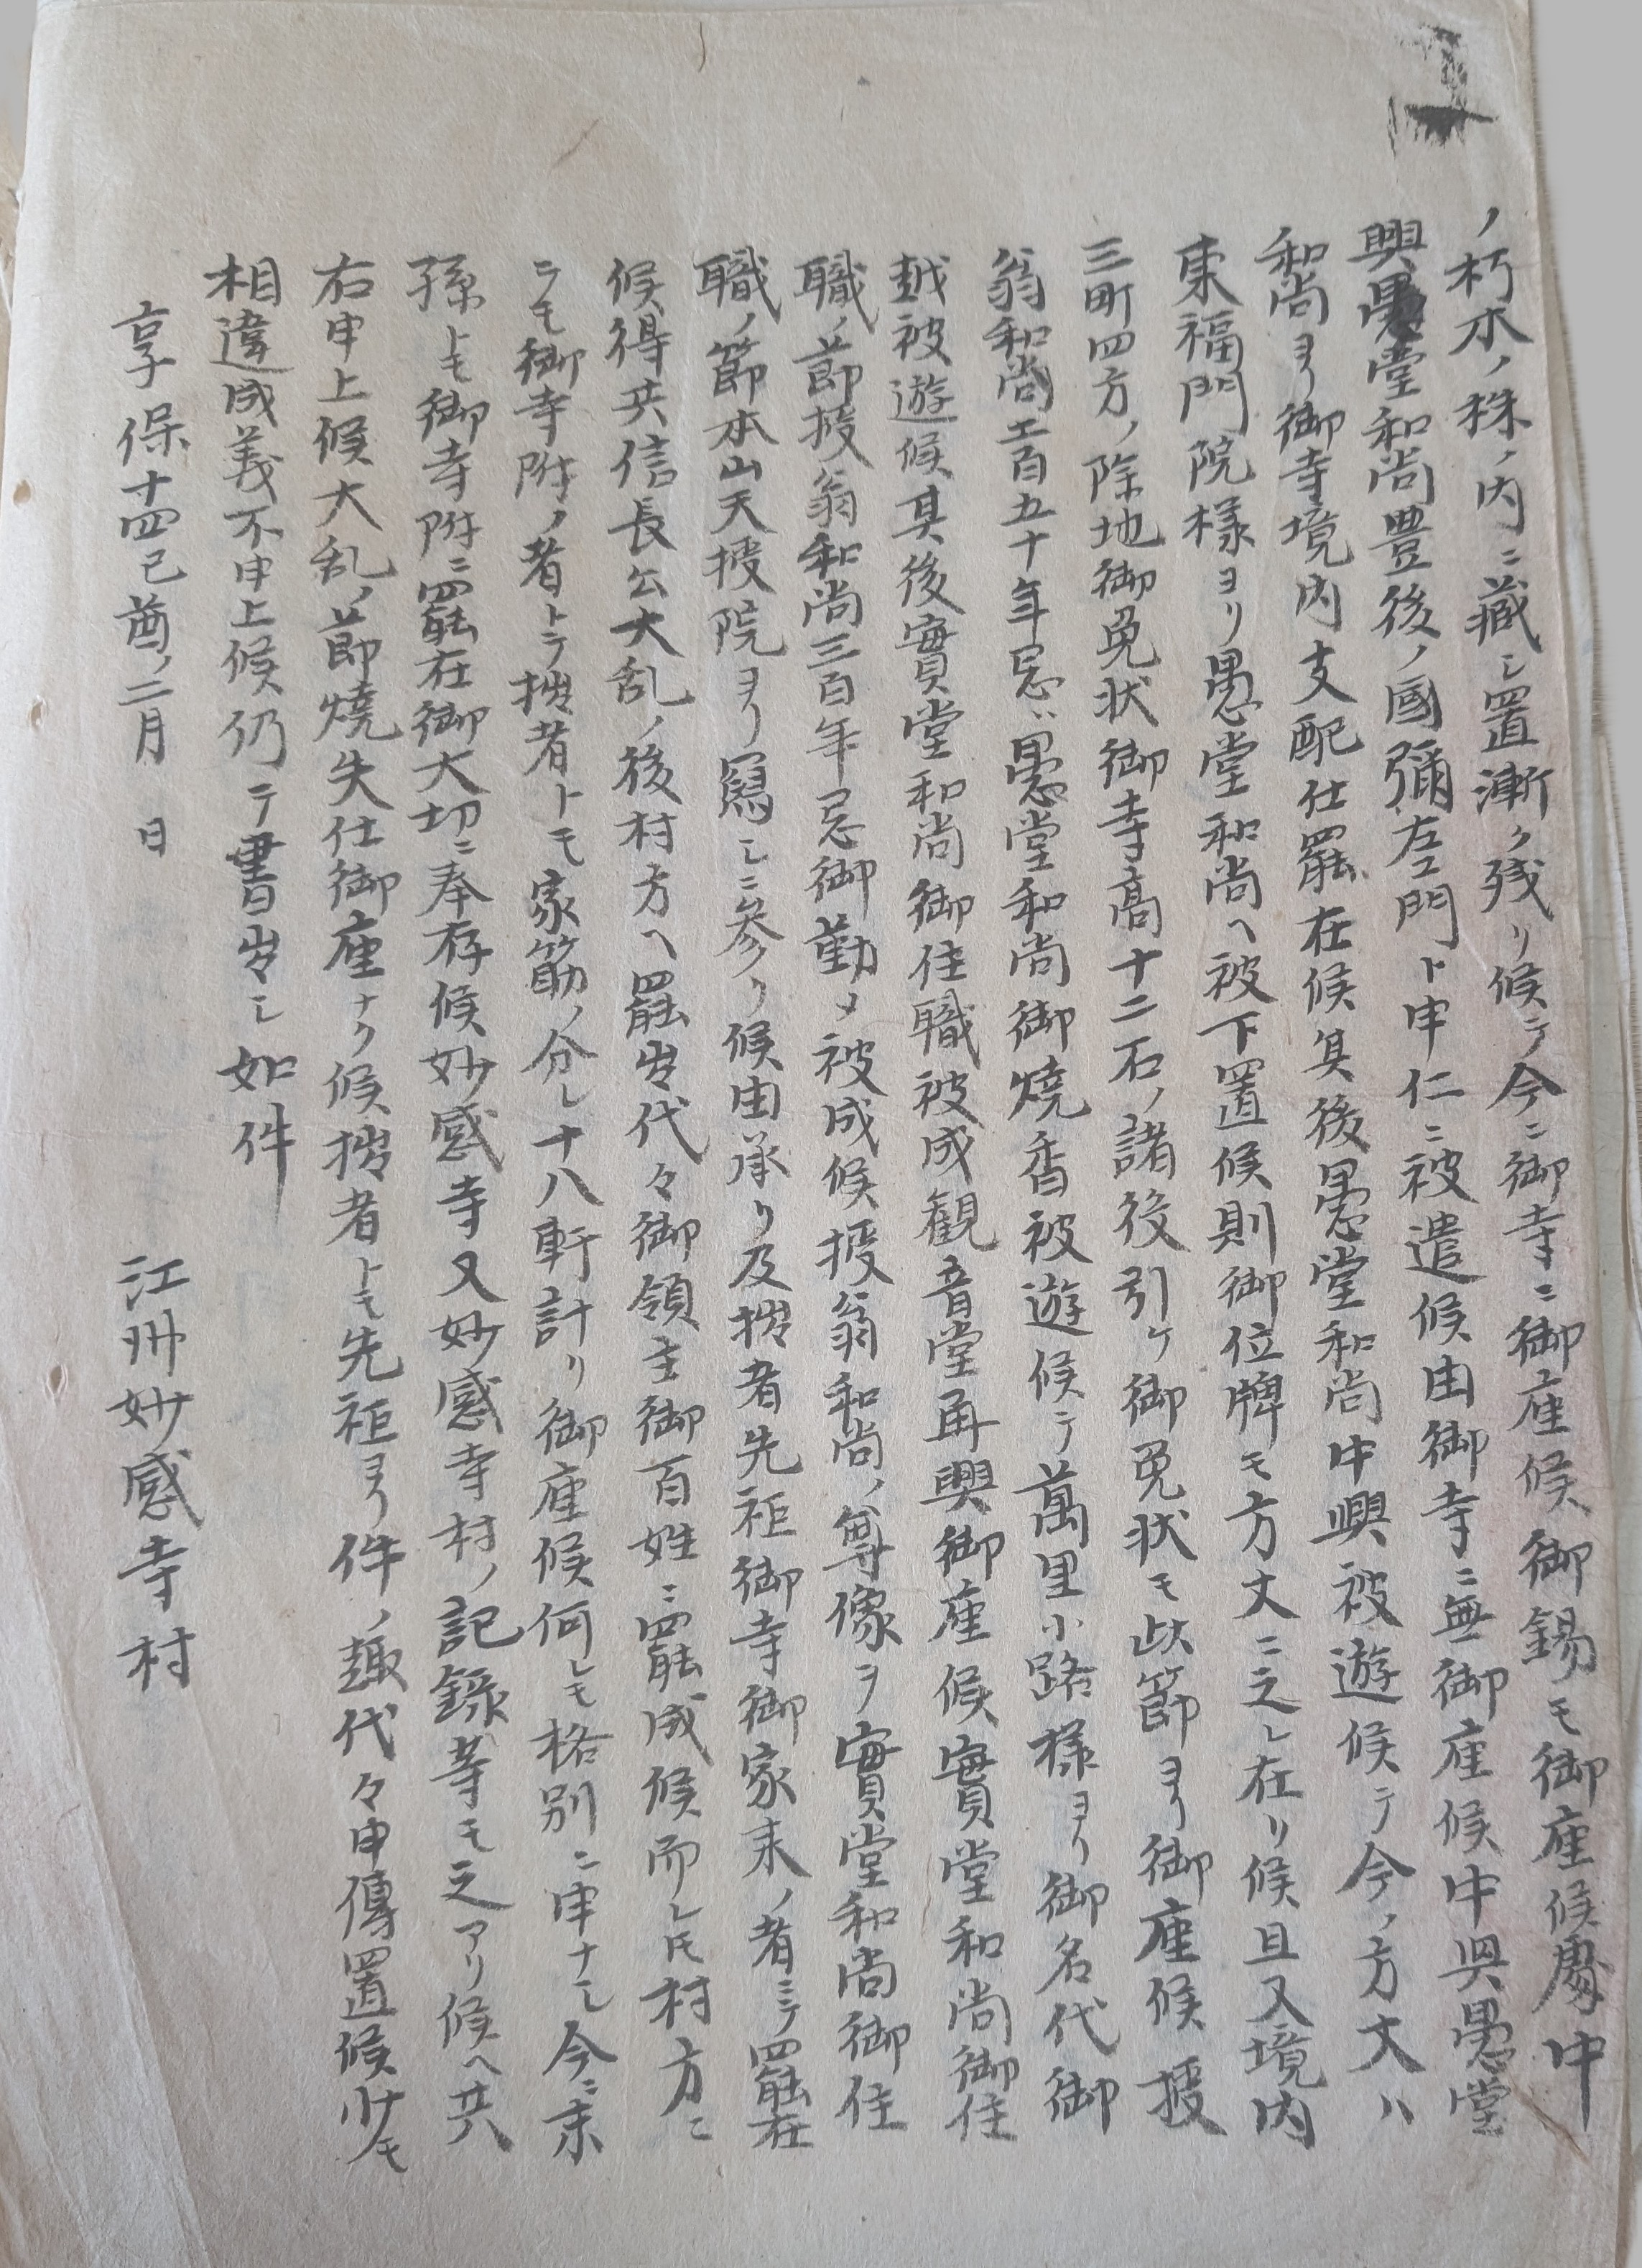 ノ朽木ノ株ノ内ニ藏シ置漸ク残リ候テ今ニ御寺ニ御座候御錫モ御座候處中
興愚堂和尚豊後ノ國彌左門ト申仁ニ被遣候由御寺ニ無御座候中興愚堂
和尚ヨリ御寺境内支配仕罷在候其後愚堂和尚中興被遊候テ今ノ方丈ハ
東福門院様ヨリ愚堂和尚ヘ被下置候則御位牌モ方丈ニ之レ在リ候且又境内
三町四方ノ除地御免状御寺高十二石ノ諸役引ケ御免状モ此節ヨリ御座候授
翁和尚二百五十年忌ハ愚堂和尚御燒香被遊候テ萬里小路様ヨリ御名代御
越被遊候其後實堂和尚御住職被成観音堂再興御座候實堂和尚御住
職ノ節授翁和尚三百年忌御勤メ被成候授翁和尚ノ尊像ヲ實堂和尚御住
職ノ節本山天授院ヨリ寫シニ参リ候由承リ及拙者先祖御寺御家来ノ者ニテ罷在
候得共信長公大乱ノ後村方ヘ罷出代々御領主御百姓ニ罷成候而レ㆑村方ニ
ニモ御寺附ノ者トテ拙者トモ家筋ノ分レ十八軒計リ御座候何レモ格別ニ申ナシ今ニ末
孫トモ御寺附ニ罷在御大切ニ奉存候妙感寺又妙感寺村ノ記錄等モ之アリ候ヘ共
右申上候大乱ノ節燒失仕御座ナク候拙者トモ先祖ヨリ件ノ趣代々申傳置候少モ
相違成義不申上候仍テ書出シ如件
享保十四己酉ノ二月 日
江州妙感寺村